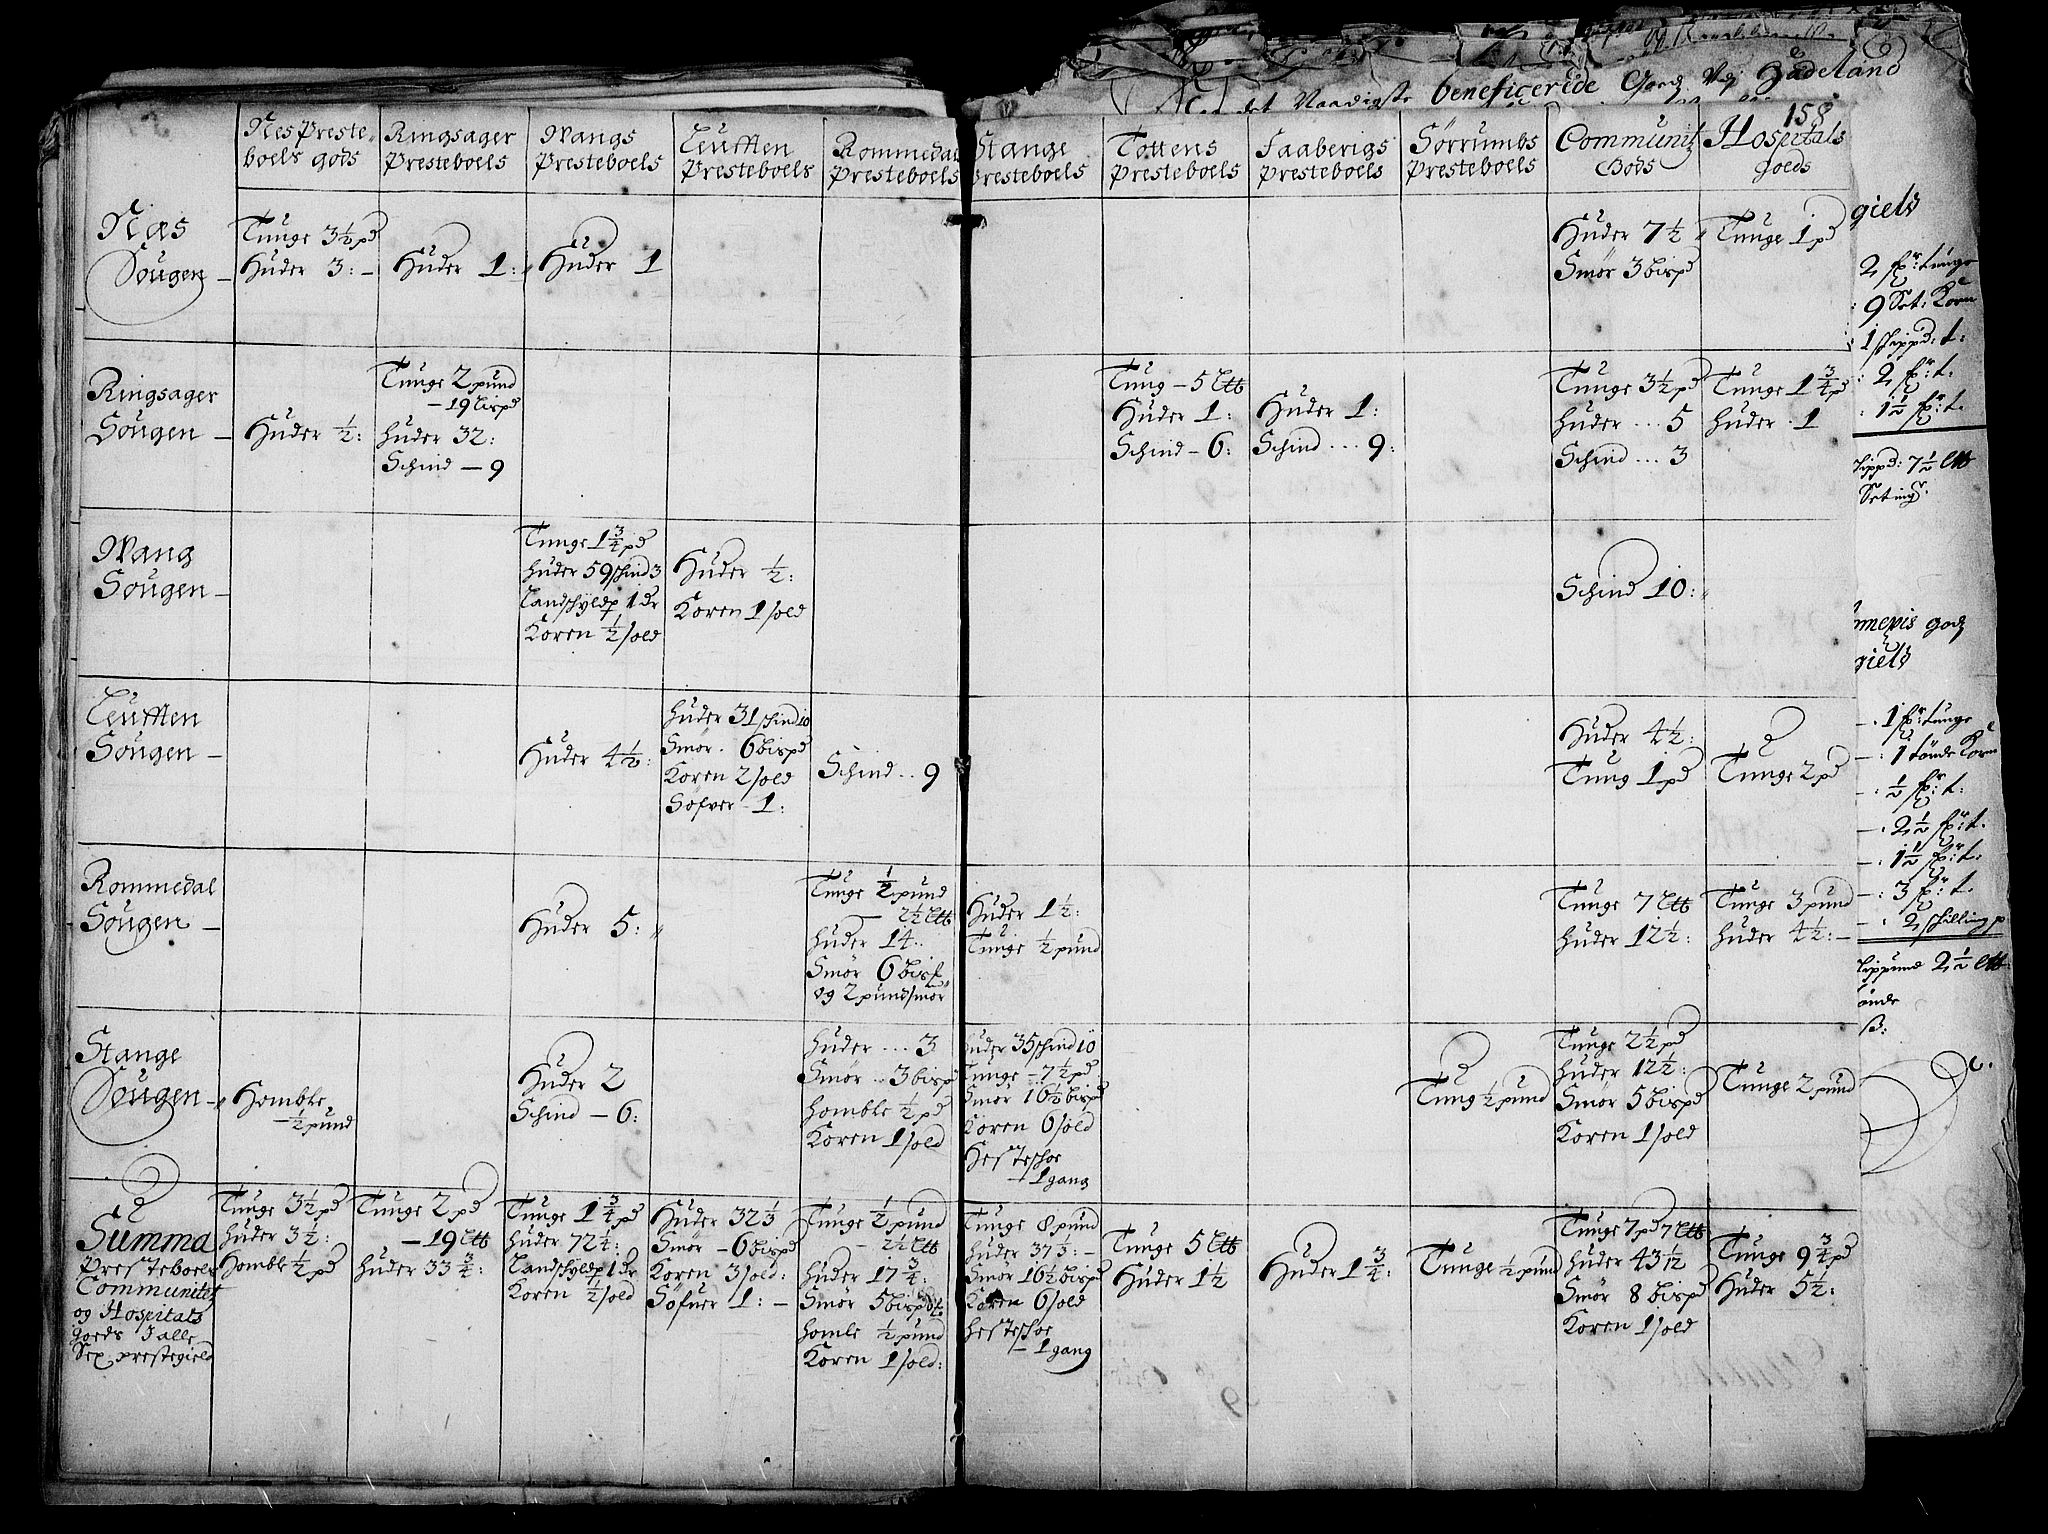 158
beneficerede Goeds Vdj Hadeland
Nes Preste-
boels gods
Ringsager
Presteboels
Wangs
Presteboels
Leutten
Presteboels
Rommedal
Presteboels
Stange
Presteboels
Tottens
Presteboels
Faaberigs
Presteboels
Sörrumbs
Presteboels
Communitz
Gods
Hospitals
goeds
Næs
Sougen –
Tunge 3½ pd
Huder 3: –
Huder 1:
Huder 1
Huder 7½
Smör 3 bispd
Tunge 1 pd
Ringsager
Sougen –
Huder ½:
Tunge 2 pund
– 19 bispd
Huder 32:
Schind – 9
Tung – 5 Ltt
Huder 1:
Schind – 6:
Huder 1:
Schind ... 9:
Tunge 3½ pd
Huder ... 5
Schind ... 3
Tunge 1¾ pd
Huder . 1
Wang
Sougen –
Tunge 1¾ pd
Huder 59 schind 3
Landschyldp 1 dr
Koren ½ sold
Huder ½:
Koren 1 sold
Schind 10:
Leutten
Sougen –
Huder 4½:
Huder 31 schind 10
Smör . 6 bispd
Koren 2 sold
Söfver – 1:
Schind .. 9
Huder 4½:
Tung 1 pd
Tunge 2 pd
Rommedal
Sougen –
Huder 5:
Tunge ½ pund
– 2½ Ltt
Huder 14..
Smör 6 bisp
og 2 pund smör
Huder 1½:
Tunge ½ pund
Tunge 7 Ltt
Huder 12½:
Tunge 3 pund
Huder 4½: –
Stange
Sougen –
Homble
– ½ pund
Huder 2
Schind – 6:
Huder ... 3
Smör .. 3 bisp
Homble ½ pd
Koren 1 sold
Huder 35 schind 10
Tunge – 7½ pd
Smör 16½ bispd
Koren 6 sold
Hesteschoe
– 1 gang
Tung ½ pund
Tunge 2½ pd
Huder 12½:
Smör 5 bispd
Koren 1 sold
Tunge 2 pund
Summa
Presteboels
Communitz
og Hospitals
goeds J alle
Sex prestegield
Tunge 3½ pd
Huder 3½:
Homble ½ pd
Tunge 2 pd
– 19 Ltt
Huder 33¾:
Tunge 1¾ pd
Huder 72½:
Landschyldp 1 dr
Koren ½ sold
Huder 32⅓
Smör – 6 bispd
Koren 3 sold:
Söfuer 1: –
Tunge ½ pund
– 2½ Ltt
Huder 17¾:
Smör 5 bispd
Homle ½ pund
Koren 1 sold:
Tunge 8 pund
Huder 37⅓: –
Smör 16½ bispd
Koren 6 sold
Hesteschoe
– 1 gang
Tunge 5 Ltt
Huder 1½
Huder 1¾:
Tunge ½ pund
Tunge 7 pd 7 Ltt
Huder 43 1/12
Smör 8 bispd
Koren 1 sold
Tunge 9¾ pd
Huder 5½:
gield
9 Set: Korn
2 schilling